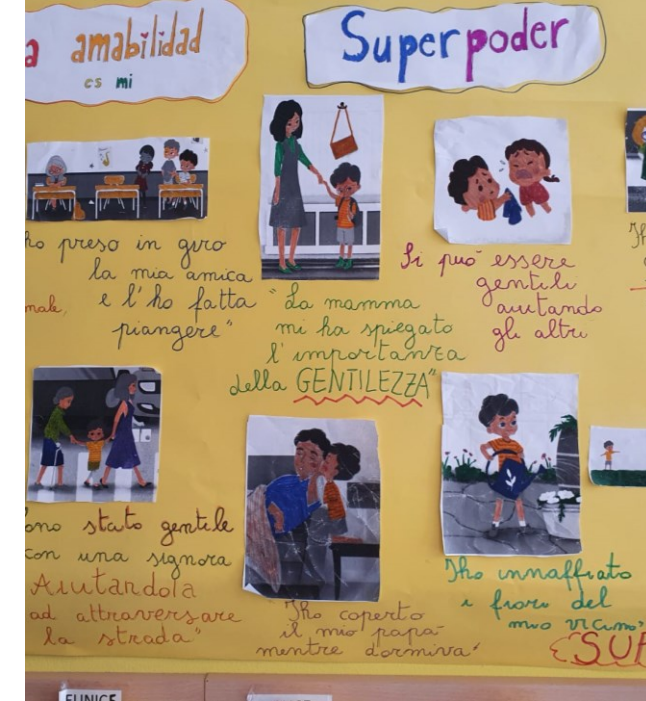 a amabilidad
es mi
Superpoder
ho preso in giro
la mia amica
e l'ho fatta
piangere"
male,
"La mamma
mi ha spiegato
l'importanza
della GENTILEZZA"
Si può essere
gentili
aiutando
gli altri
ono stato gentile
con una signora
Aiutandola
ad attraversare
la strada"
"ho coperto
il mio papà
mentre dormiva"
"ho innaffiato
i fiori del
mio vicino"
SUP
EUNICE